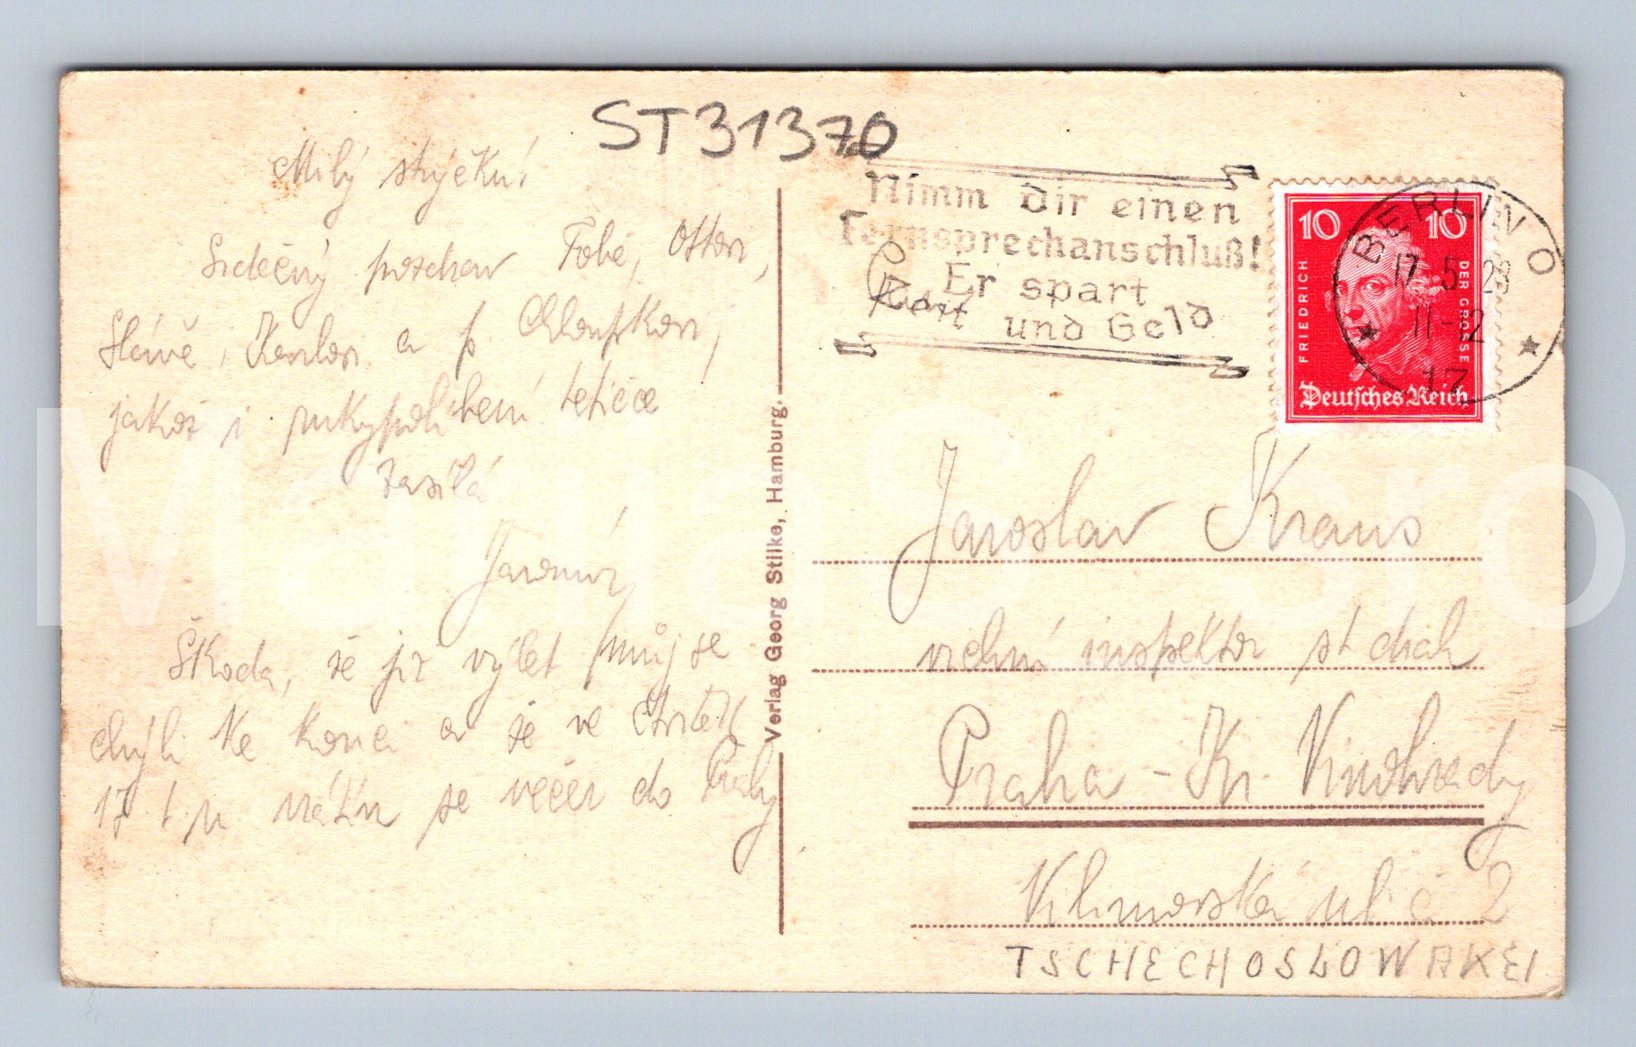 ST31370
Milý strýčku!
Srdečný pozdrav Tobě, Ottovi,
Slávě, Karlovi a p. Chloupkovi,
jakož i rukypolíbení tetičce
zasílá
Jaromír
Škoda, že již výlet můj se
chýlí ke konci a že ve čtvrtek
17. t. m. vrátím se večer do Prahy
Verlag Georg Stilke, Hamburg.
Nimm dir einen
Fernsprechanschluß!
Er spart
Zeit und Geld
BERLIN O
17 5 28
11-12
17
10 10
FRIEDRICH
DER GROSSE
Deutsches Reich
Jaroslav Kraus
vrchní inspektor st drah
Praha - Kr. Vinohrady
ul. č 2
TSCHECHOSLOWAKEI